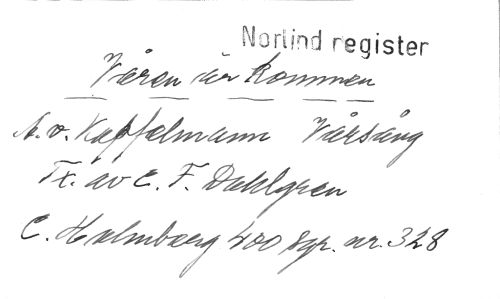 Norlind register
Våren är kommen
A. v. Kapfelmann Vårsång
Tx. av C. F. Dahlgren
C. Holmberg 400 sgr. nr. 328